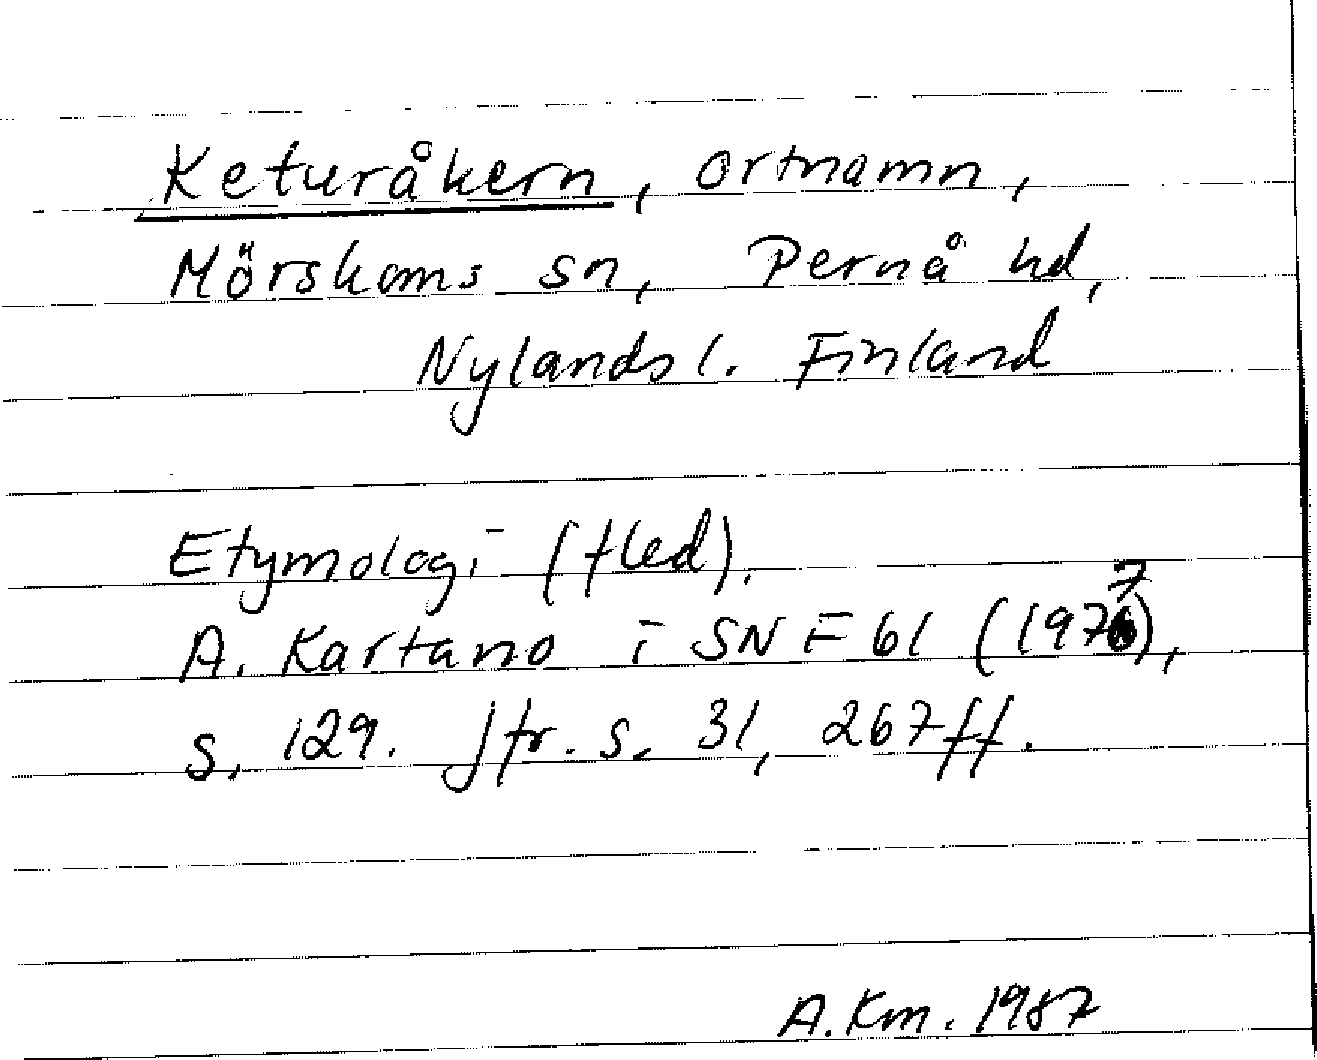 Keturåkern, ortnamn,
Mörskoms sn, Pernå hd,
Nylands l. Finland
Etymologi (fled).
A. Kartano i SNF 61 (1977),
s. 129. Jfr. s. 31, 267 ff.
A. Km. 1987